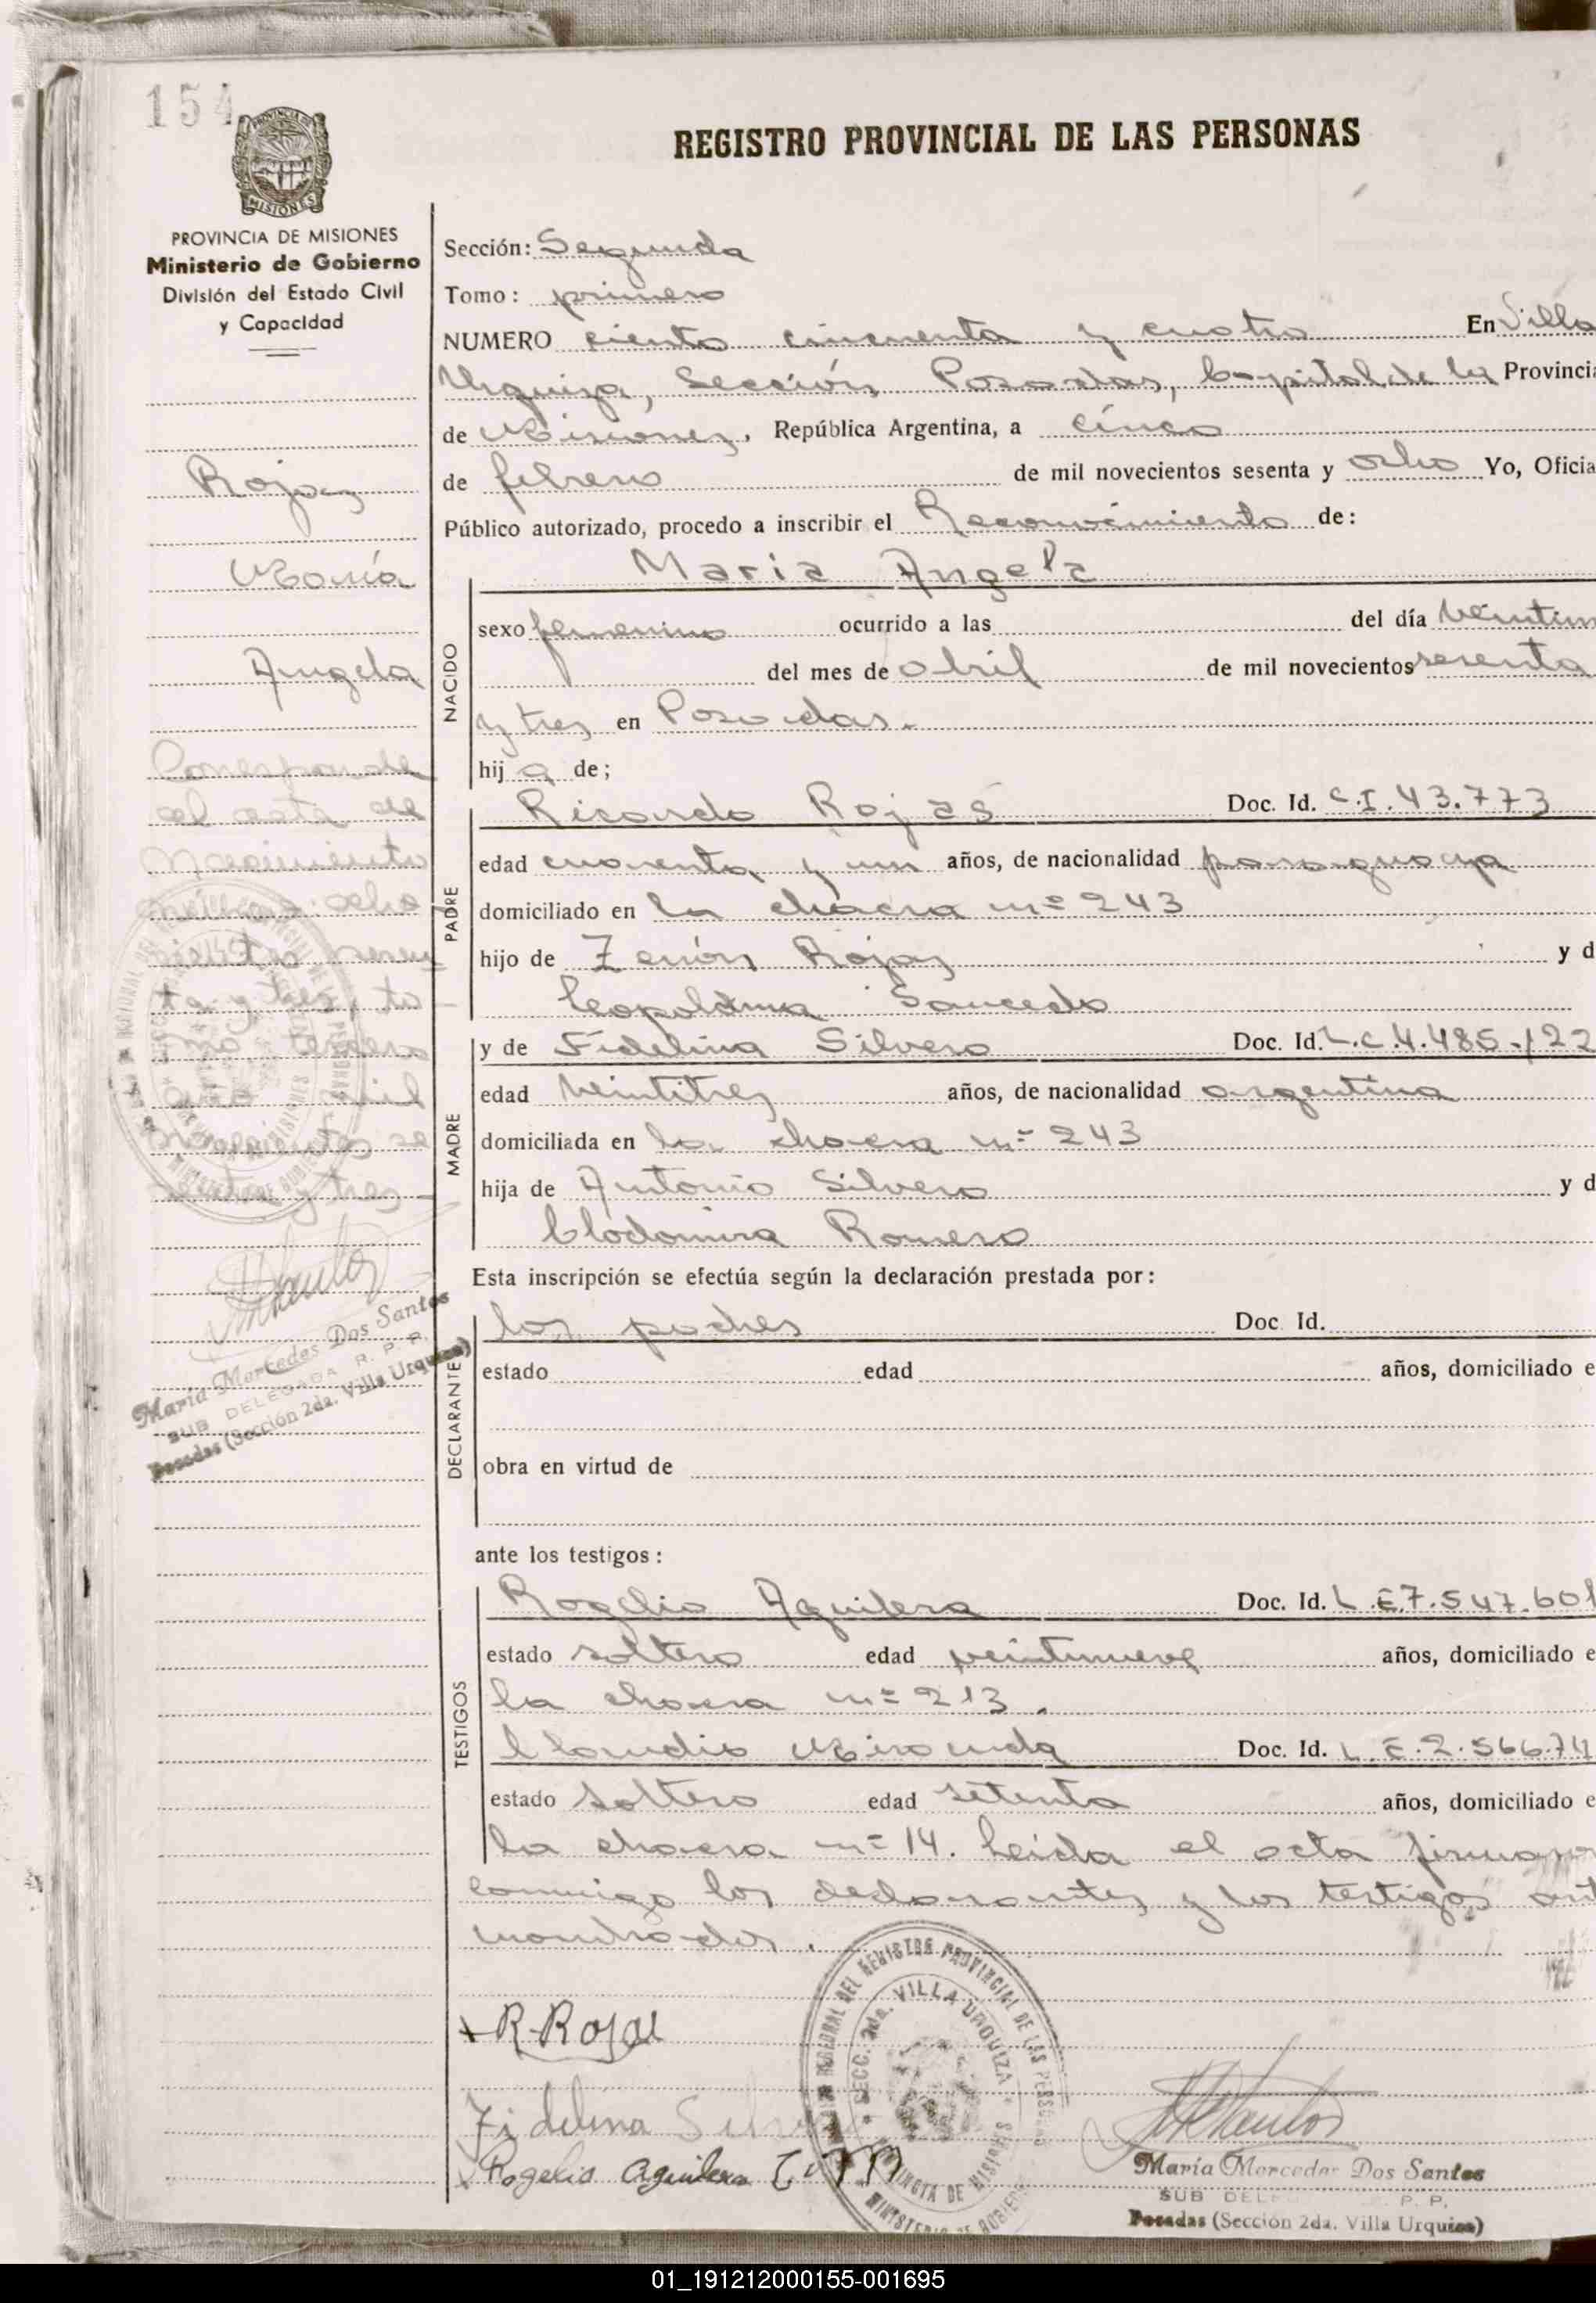 154
PROVINCIA DE MISIONES
MISIONES
PROVINCIA DE MISIONES
Ministerio de Gobierno
División del Estado Civil
y Capacidad
Rojas
María
Angela
Corresponde
al acta de
nacimiento
número ocho
cientos sesen
ta y tres, to
mo tercero
año mil
novecientos se
senta y tres
María Mercedes Dos Santos
SUB DELEGADA R. P. P.
Posadas (Sección 2da. Villa Urquiza)
REGISTRO PROVINCIAL DE LAS PERSONAS
Sección: Segunda
Tomo: primero
NUMERO ciento cincuenta y cuatro En Villa
Urquiza, Sección Posadas, Capital de la Provincia
de Misiones, República Argentina, a cinco
de febrero de mil novecientos sesenta y ocho Yo, Oficia
Público autorizado, procedo a inscribir el Reconocimiento de:
Maria Angela
NACIDO
sexo femenino ocurrido a las del día veintiun
del mes de abril de mil novecientos sesenta
y tres en Posadas.
hij a de;
PADRE
Ricardo Rojas Doc. Id. C.I. 43.773
edad cuarenta y un años, de nacionalidad paraguaya
domiciliado en la chacra nº 243
hijo de Zenón Rojas y d
Leopoldina Saucedo
MADRE
y de Fidelina Silvero Doc. Id. L.C. 4.485.122
edad veintitres años, de nacionalidad argentina
domiciliada en la chacra nº 243
hija de Antonio Silvero y d
Clodomira Romero
Esta inscripción se efectúa según la declaración prestada por:
DECLARANTE
los padres Doc. Id.
estado edad años, domiciliado e
obra en virtud de
ante los testigos:
TESTIGOS
Rogelio Aguilera Doc. Id. L.E. 7.547.601
estado soltero edad veintinueve años, domiciliado e
la chacra nº 213.
Claudio Miranda Doc. Id. L.E. 2.566.74
estado soltero edad setenta años, domiciliado e
la chacra nº 14. Leída el acta firman
conmigo los declarantes y los testigos ant
nombrados.
R. Rojas
Fidelina Silve
Rogelio Aguilera
REGIONAL DEL REGISTRO PROVINCIAL DE LAS PERSONAS
SECC. 2da. VILLA URQUIZA
PROVINCIA DE MISIONES
MINISTERIO DE GOBIERNO
María Mercedes Dos Santos
SUB DEL P. P.
Posadas (Sección 2da. Villa Urquiza)
01_191212000155-001695